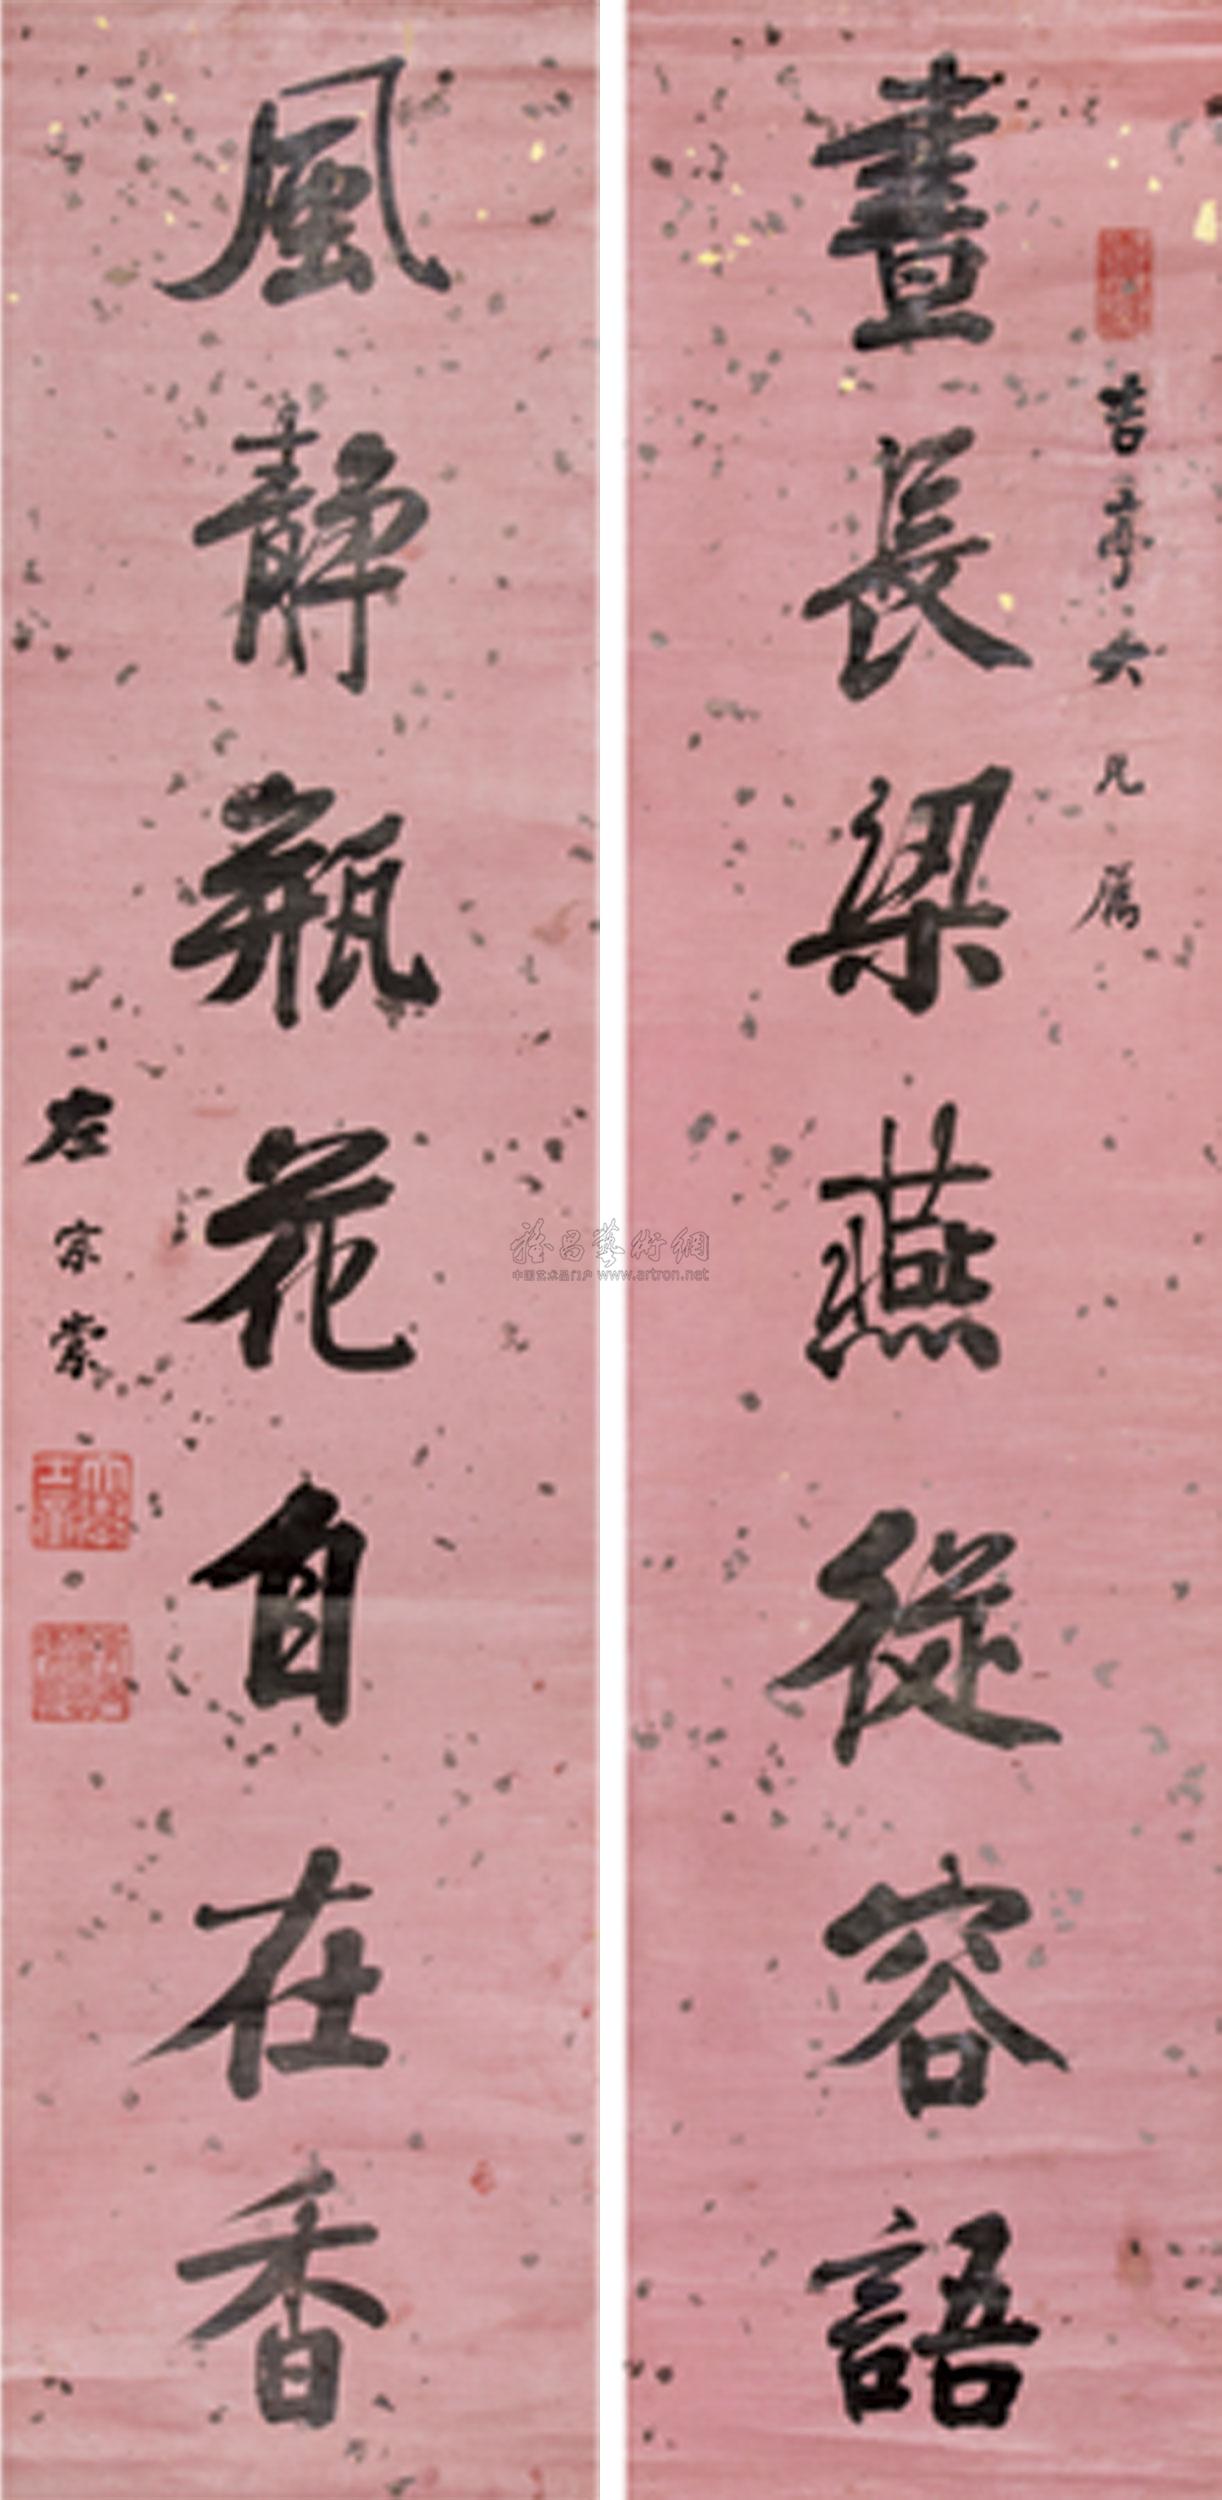 晝長梁燕從容語
吉亭大兄属
風靜瓶花自在香
左宗棠
大學士章
雅昌藝術網
中国艺术品门户 www.artron.net